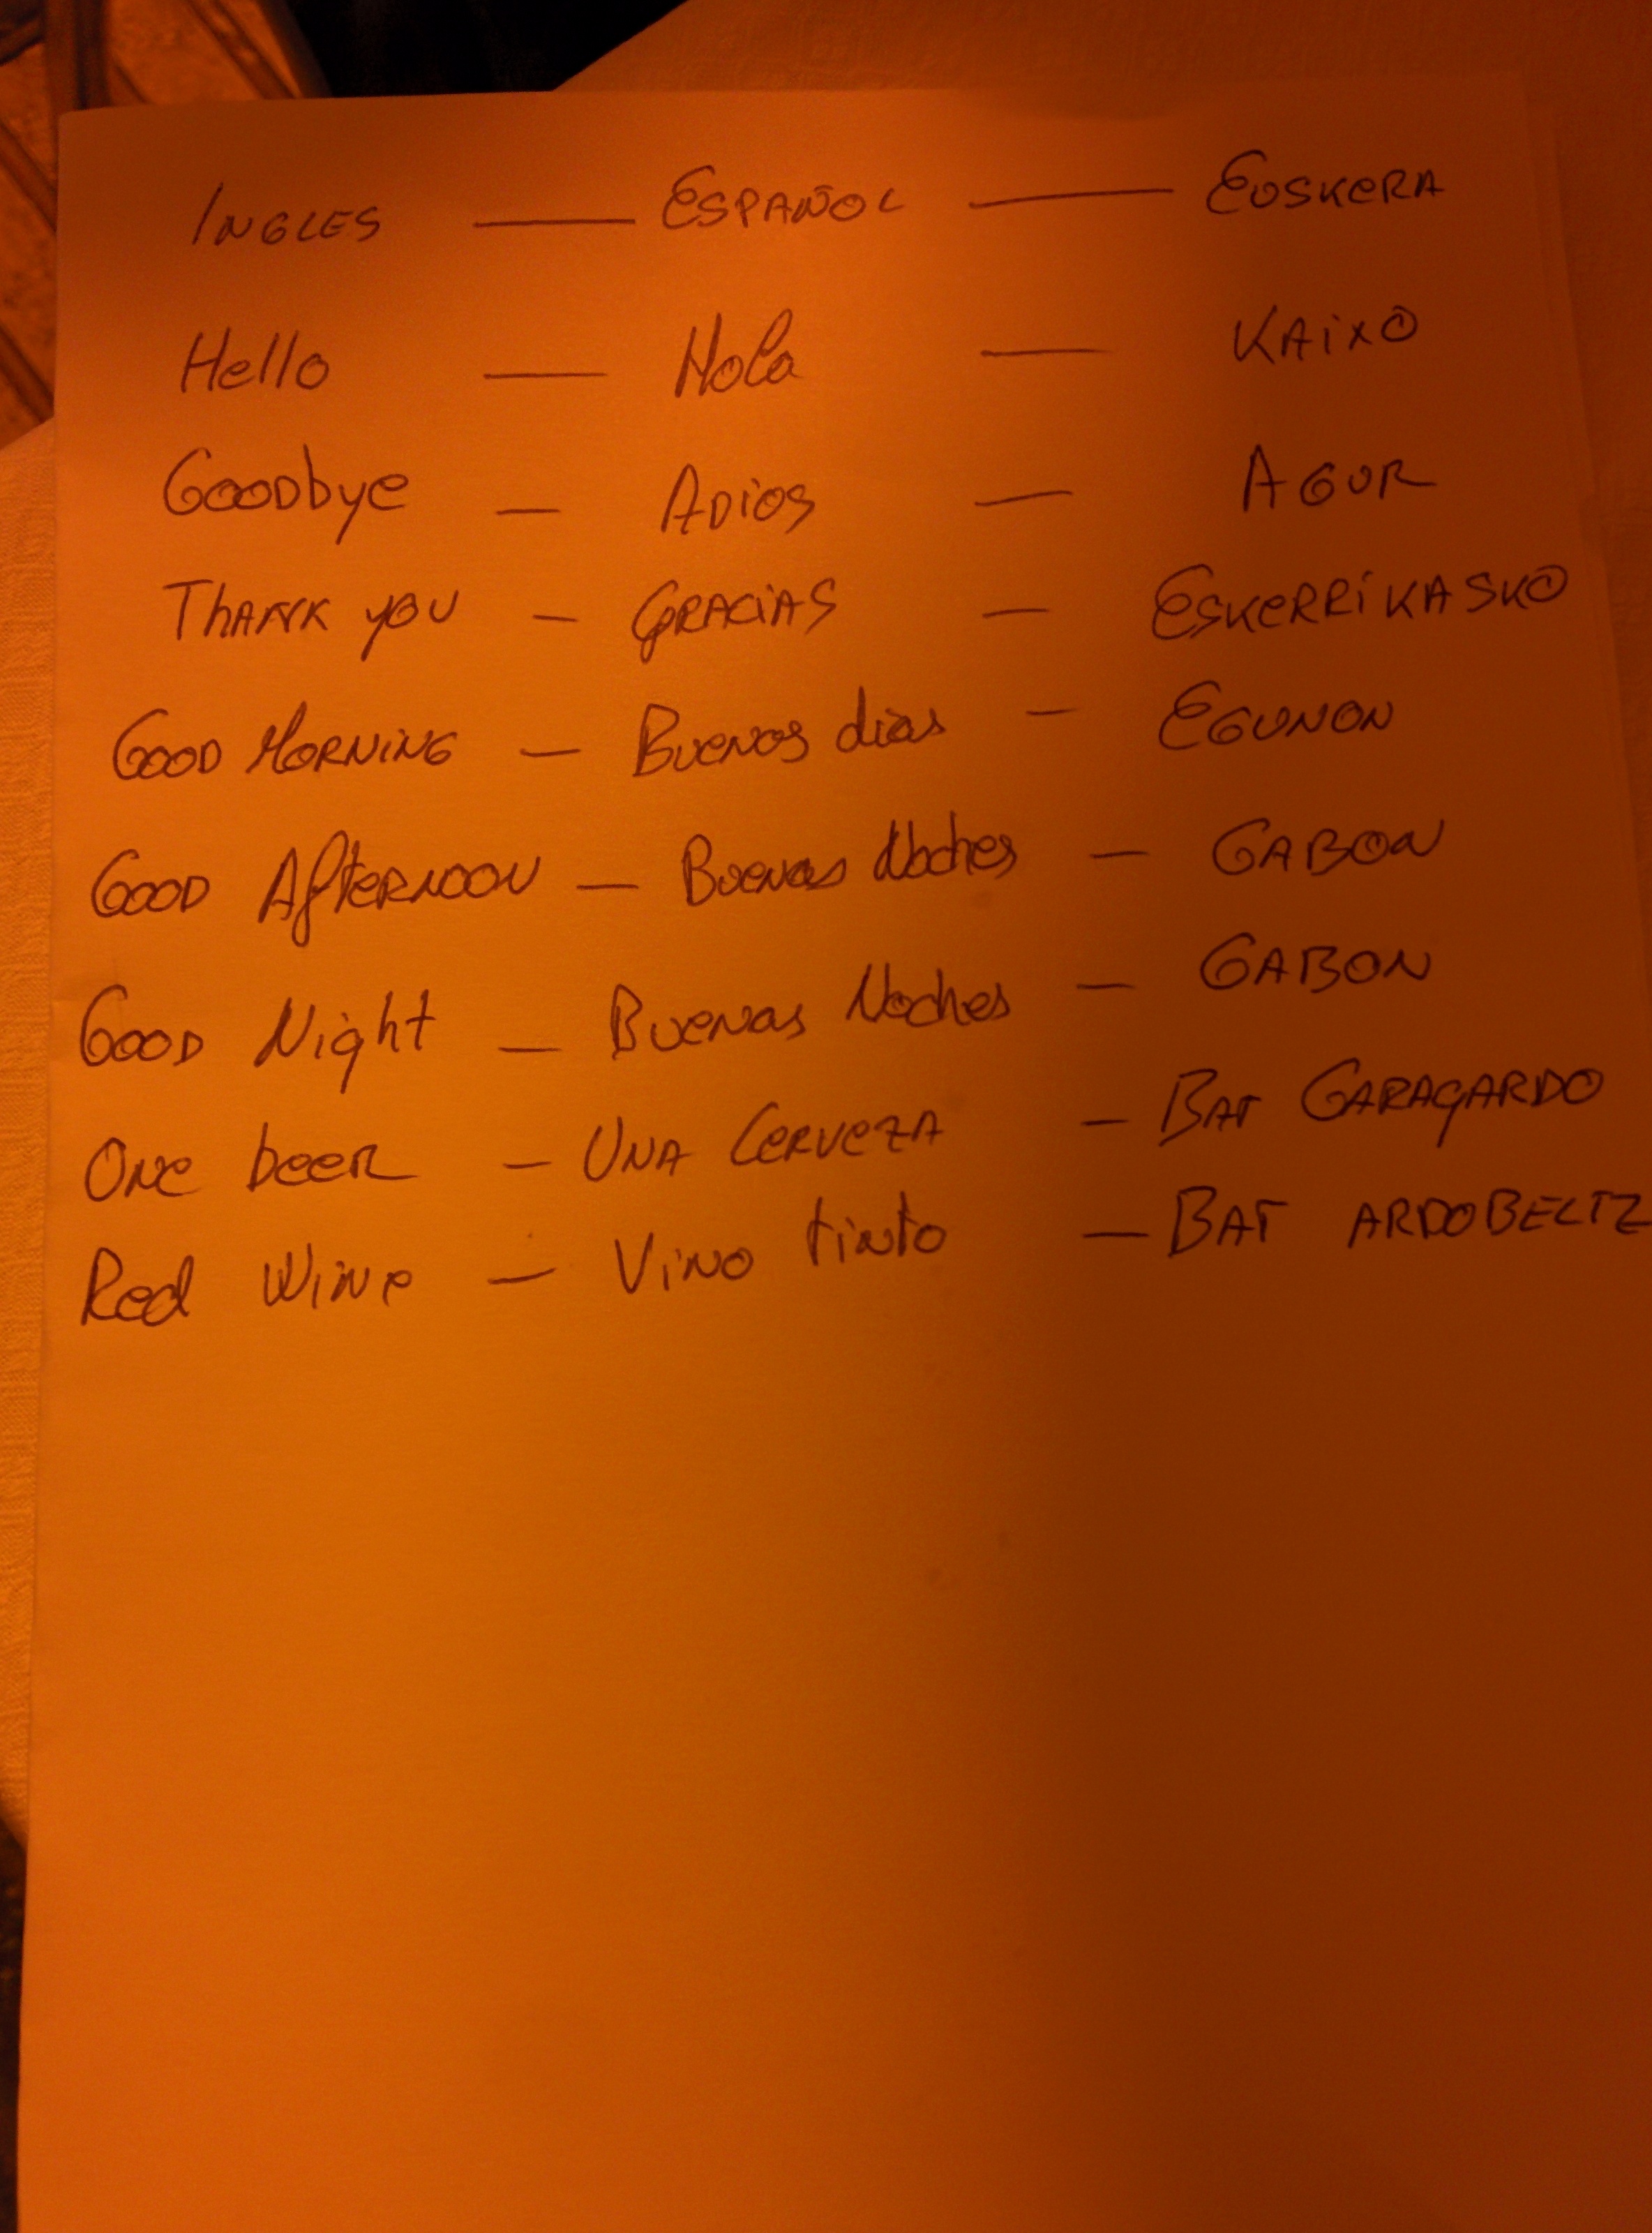 INGLES — ESPAÑOL — EUSKERA
Hello — Hola — KAixO
Goodbye — ADiOS — AGUR
ThANK YOU — GRACiAS — ESKERRiKASKO
GOOD MORNiNG — BUENOS dias — EGUNON
GOOD AfTERNOON — BUENAS Noches — GABON
GOOD Night — BUENAS Noches — GABON
One beer — UNA CERVEZA — BAT GARAGARDO
Red Wine — ViNO tinto — BAT ARDOBELTZ